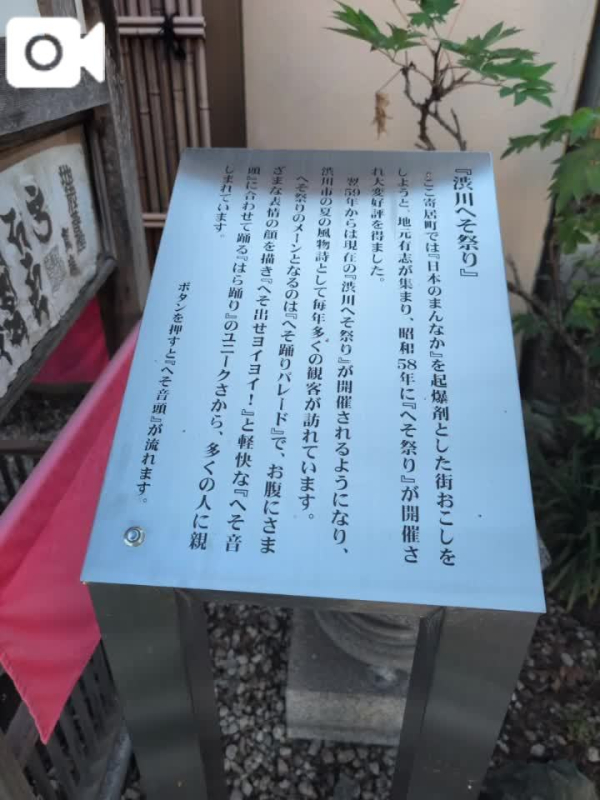 『渋川へそ祭り』
ここ寄居町では『日本のまんなか』を起爆剤とした街おこしを
しようと、地元有志が集まり、昭和58年に『へそ祭り』が開催さ
れ大変好評を得ました。
翌59年からは現在の『渋川へそ祭り』が開催されるようになり、
渋川市の夏の風物詩として毎年多くの観客が訪れています。
へそ祭りのメーンとなるのは『へそ踊りパレード』で、お腹にさま
ざまな表情の顔を描き『へそ出せヨイヨイ!』と軽快な『へそ音
頭』に合わせて踊る『はら踊り』のユニークさから、多くの人に親
しまれています。
ボタンを押すと『へそ音頭』が流れます。